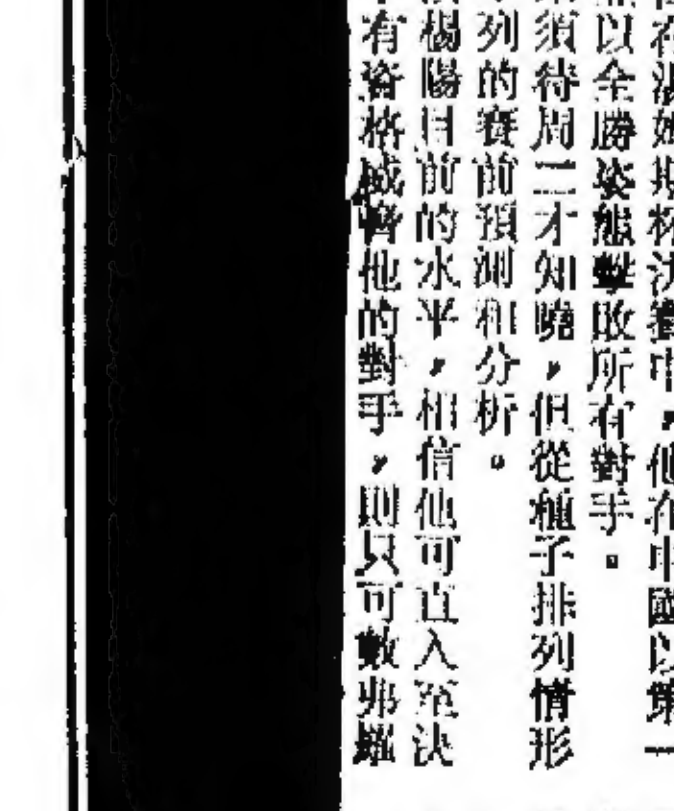 在湯姆斯杯決賽中，他在中國以第一
以全勝姿態擊敗所有對手。
須待周二才知曉，但從種子排列情形
列的賽前預測和分析。
楊陽目前的水平，相信他可直入至決
有資格威脅他的對手，則只可數弗羅